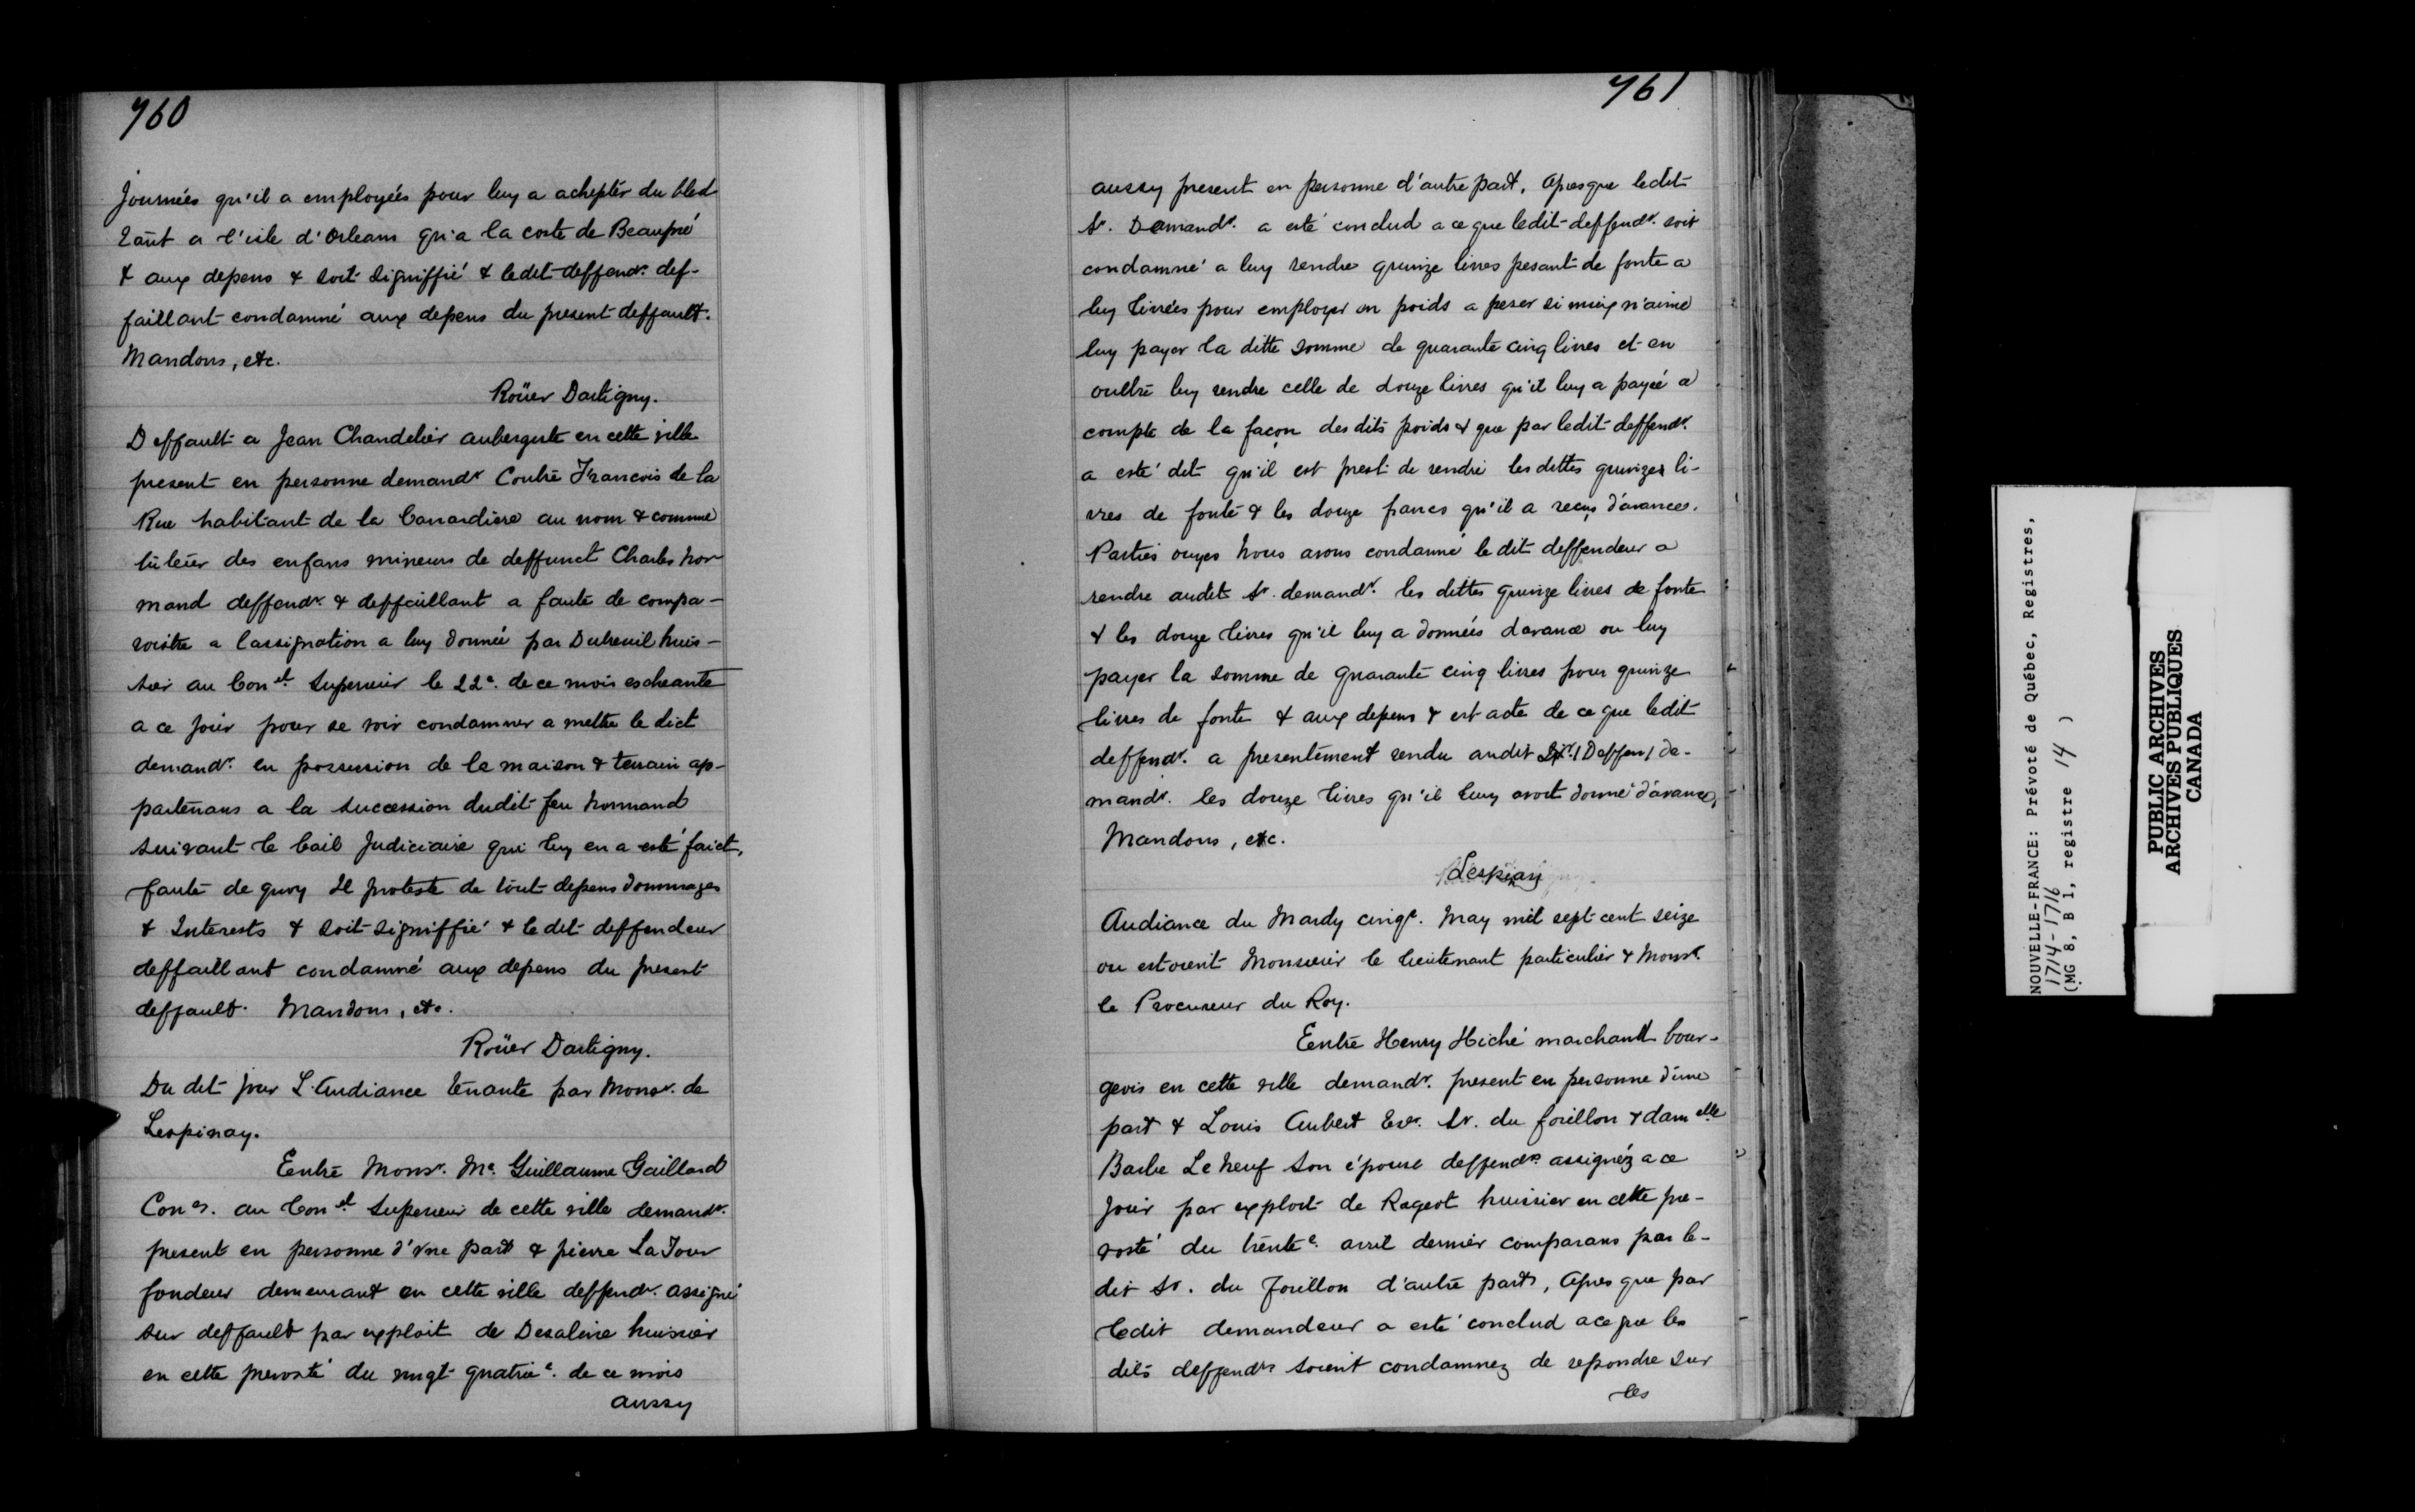 760
Journées qu'il a employées pour luy a achepter du bled
tant a l'isle d'Orleans qu'a la coste de Beaupré
& aux depens & soit signiffié & ledit deffendr. def-
faillant condamné aux depens du present deffault.
Mandons, etc.
Roüer Dartigny.
Deffault a Jean Chandelier aubergiste en cette ville
present en personne demandr Contre Francois de la
Rue habitant de la Canardiere au nom & comme
tuteur des enfans mineurs de deffunct Charles Nor-
mand deffendr. & deffaillant a faute de compa-
roistre a lassignation a luy donnée par Dubreuil huis-
sier au Conel. Superieur le 22e. de ce mois escheante
a ce jour pour se voir condamner a mettre le dict
demandr. en possession de la maison & terrain ap-
partenans a la succession dudit feu Normand
suivant le bail Judiciaire qui luy en a esté faict,
faute de quoy Il proteste de tout depens dommages
& Interests & soit signiffié & le dit deffendeur
deffaillant condamné aux depens du present
deffault. Mandons, etc.
Roüer Dartigny.
Du dit jour L'Audiance tenante par Monsr. de
Lespinay.
Entre Monsr. Me. Guillaume Gaillard
Coner. au Conel. Superieur de cette ville demandr.
present en personne d'vne part & pierre La Tour
fondeur demeurant en cette ville deffendr. assigné
sur deffault par exploit de Desaline huissier
en cette prevosté du vingt quatrie. de ce mois
aussy
761
aussy present en personne d'autre part, Apres que ledit
Sr. Demandr. a esté conclud a ce que ledit deffendr. soit
condamné a luy rendre quinze livres pesant de fonte a
luy livrées pour employer en poids a peser si mieux n'aime
luy payer la ditte somme de quarante cinq livres et en
oultre luy rendre celle de douze livres qu'il luy a payée a
compte de la façon des dits poids & que par ledit deffendr.
a esté dit qu'il est prest de rendre les dittes quinzes li-
vres de fonte & les douze francs qu'il a reçus d'avance.
Parties ouyes Nous avons condamné le dit deffendeur a
rendre audit Sr. demandr. les dittes quinze livres de fonte
& les douze livres qu'il luy a données davance ou luy
payer la somme de quarante cinq livres pour quinze
livres de fonte & aux depens & est acte de ce que ledit
deffendr. a presentement rendu audit Sr. (Deffen) de-
mandr. les douze livres qu'il luy avoit donné d'avance,
Mandons, etc.
Lespinay
Audiance du Mardy cinqe. May mil sept cent seize
ou estoient Monsieur le lieutenant particulier & Monsr.
le Procureur du Roy.
Entre Henry Hiché marchand bour-
geois en cette ville demandr. present en personne d'une
part & Louis Aubert Esr. Sr. du forillon & damelle
Barbe Le Neuf son épouse deffendrs. assignéz a ce
jour par exploit de Rageot huissier en cette pre-
vosté du trente. avril dernier comparans par le-
dit Sr. du Forillon d'autre part, Apres que par
ledit demandeur a esté conclud a ce que les
dits deffendrs soient condamnez de repondre sur
les
NOUVELLE-FRANCE: Prévoté de Québec, Registres,
1714-1716
(MG 8, B 1, registre 14 )
PUBLIC ARCHIVES
ARCHIVES PUBLIQUES
CANADA